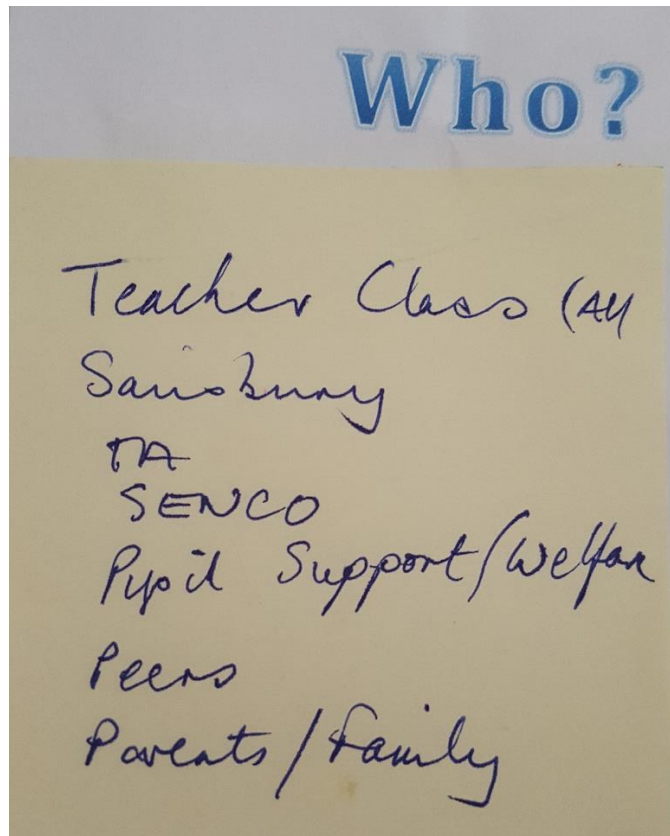 Who?
Teacher Class (All
Sainsbury
TA
SENCO
Pupil Support/Welfare
Peers
Parents/Family